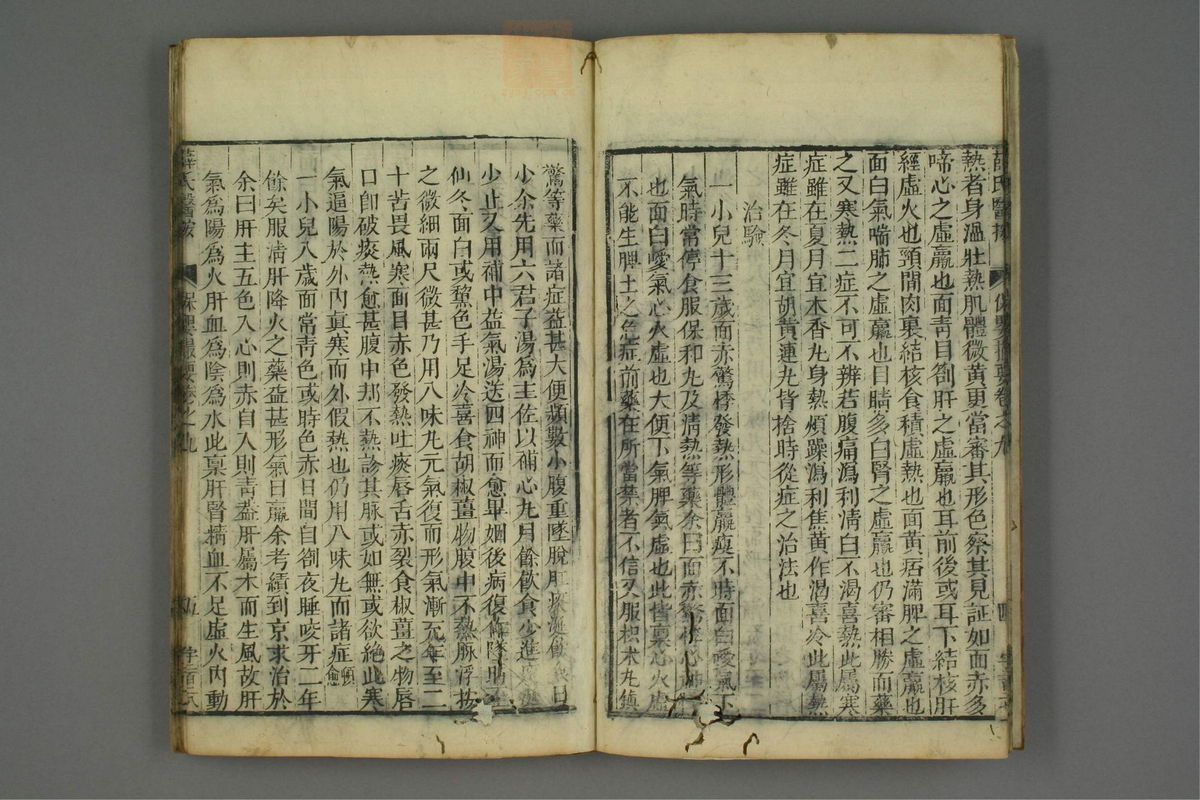 薛氏醫按
保嬰撮要卷之九
四
熱者身溫壯熱肌體微黃更當審其形色察其見証如面赤多
啼心之虛羸也面靑目劄肝之虛羸也耳前後或耳下結核肝
經虛火也頸間肉裏結核食積虛熱也面黃痞滿脾之虛羸也
面白氣喘肺之虛羸也目睛多白腎之虛羸也仍審相勝而藥
之又寒熱二症不可不辨若腹痛瀉利淸白不渴喜熱此屬寒
症雖在夏月宜木香丸身熱煩躁瀉利焦黃作渴喜冷此屬熱
症雖在冬月宜胡黃連丸皆捨時從症之治法也
治驗
一小兒十三歲面赤驚悸發熱形體羸瘦不時面白噯氣下
氣時常停食服保和丸及淸熱等藥余曰面赤驚悸心神
也面白噯氣心火虛也大便下氣脾氣虛也此皆稟心火虛
不能生脾土之危症前藥在所當禁者不信又服枳朮丸鎮
驚等藥而諸症益甚大便頻數小腹重墜脫肛痰涎飲食日
少余先用六君子湯爲主佐以補心丸月餘飲食少進
少止又用補中益氣湯送四神而愈畢姻後病復
仙冬面白或黧色手足冷喜食胡椒薑物腹中不熱脉浮按
之微細兩尺微甚乃用八味丸元氣復而形氣漸充年至二
十苦畏風寒面目赤色發熱吐痰唇舌赤裂食椒薑之物唇
口卽破痰熱愈甚腹中却不熱診其脉或如無或欲絕此寒
氣逼陽於外內眞寒而外假熱也仍用八味丸而諸症頓愈
一小兒八歲面常靑色或時色赤日間自劄夜睡咬牙二年
餘矣服淸肝降火之藥益甚形氣日羸余考績到京求治於
余曰肝主五色入心則赤自入則靑蓋肝屬木而生風故肝
氣爲陽爲火肝血爲陰爲水此稟肝腎精血不足虛火內動
薛氏醫按
保嬰撮要卷之九
五